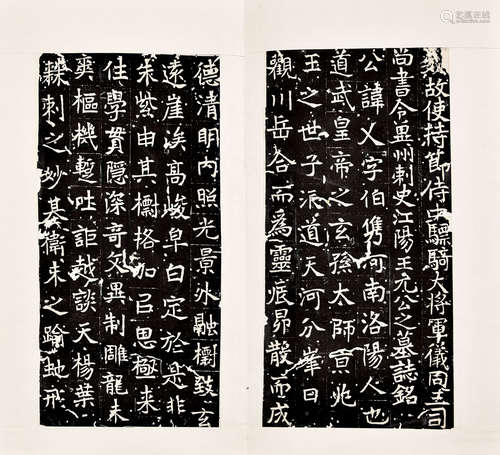 魏故使持節侍中驃騎大將軍儀同三司
尚書令冀州刺史江陽王元公之墓誌銘
公諱乂字伯儁河南洛陽人也
道武皇帝之玄孫太師京兆
王之世子派道天河分峯日
觀川岳合而為靈辰昴散而成
德清明內照光景外融櫛致玄
遠崖涘高峻早白定於是非
朱紫由其標格加以思極來
往學貫隱深奇文異制雕龍未
爽樞機蹔吐詎越談天楊葉
棘刺之妙基衛未之踰虵形